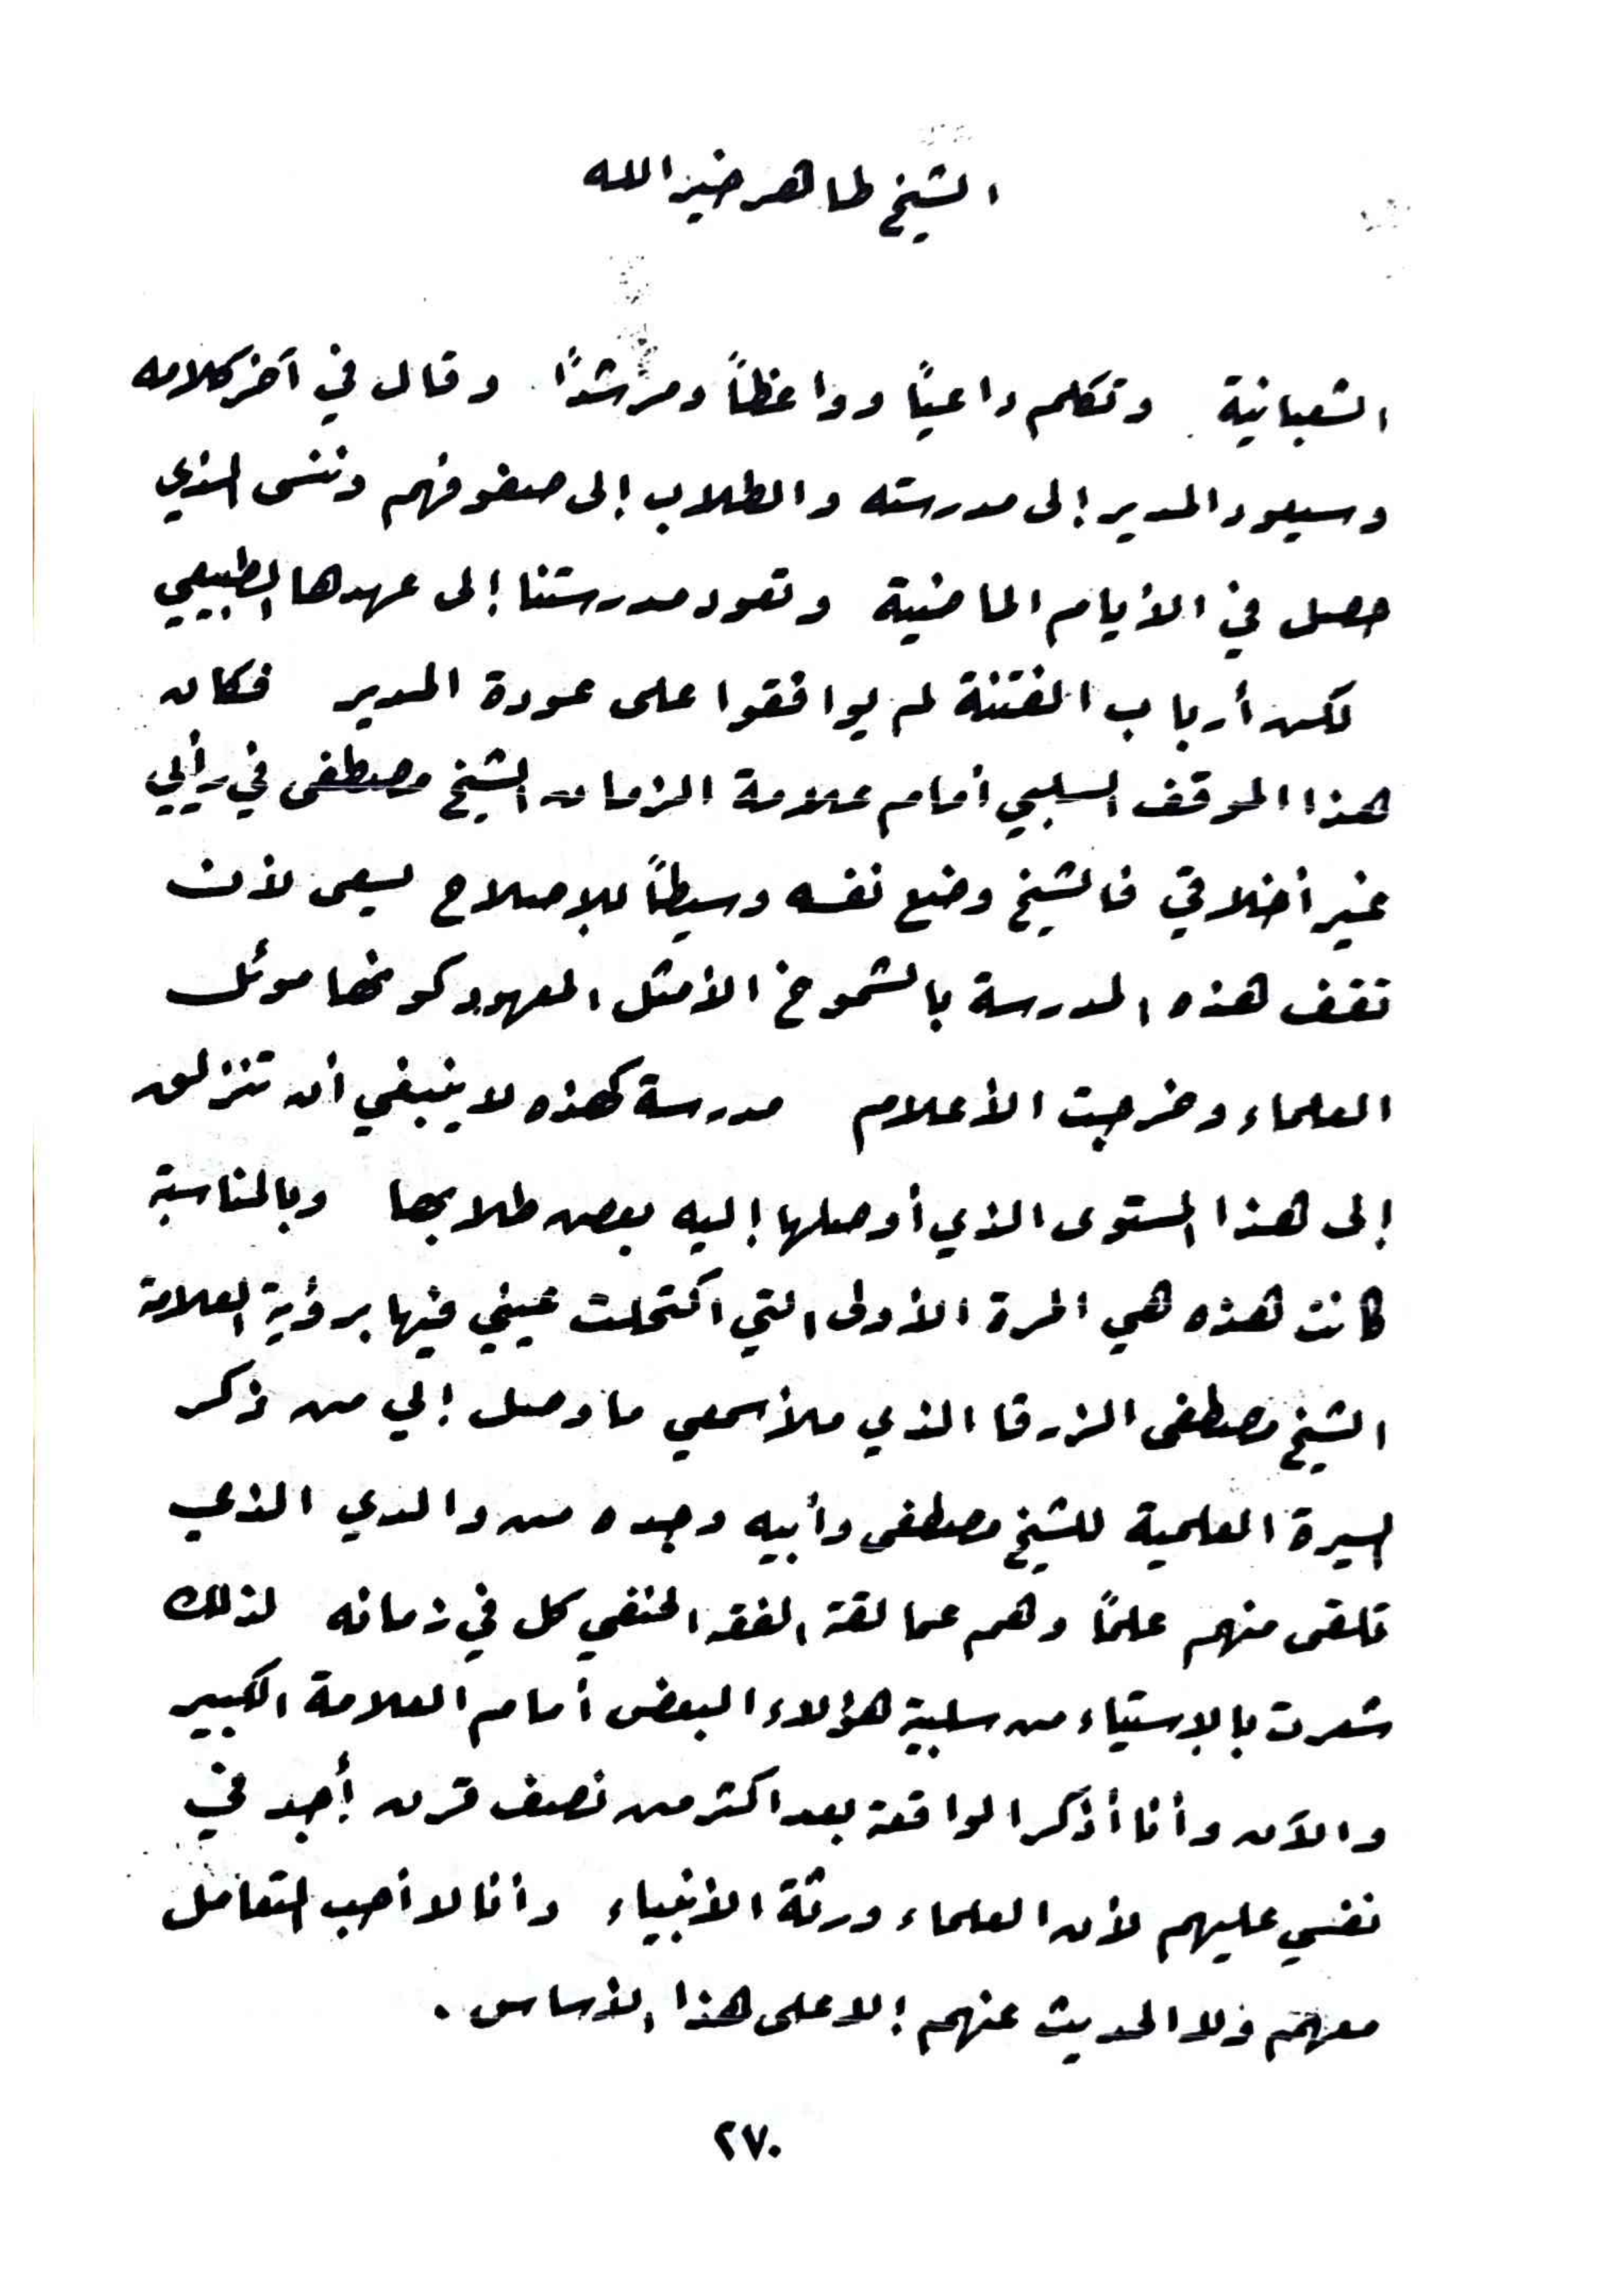 الشيخ طاهر خير الله
الشعبانية وتكلم داعياً وواعظاً ومرشداً. وقال في آخر كلامه
وسيعود المدير إلى مدرسته والطلاب إلى صفوفهم وننسى الذي
حصل في الأيام الماضية وتعود مدرستنا إلى عهدها الطبيعي
لكن أرباب الفتنة لم يوافقوا على عودة المدير فكان
هذا الموقف السلبي أمام علامة الزمان الشيخ مصطفى في رأيي
غير أخلاقي فالشيخ وضع نفسه وسيطاً للإصلاح ليسعى لأن
تقف هذه المدرسة بالشموخ الأمثل المعهود كونها موئل
العلماء وخرجت الأعلام مدرسة كهذه لا ينبغي أن تنزلق
إلى هذا المستوى الذي أوصلها إليه بعض طلابها وبالمناسبة
كانت هذه هي المرة الأولى التي اكتحلت عيني فيها برؤية العلامة
الشيخ مصطفى الزرقا الذي ملأ سمعي ما وصل إلي من ذكر
السيرة العلمية للشيخ مصطفى وأبيه وجده من والدي الذي
تلقى منهم علماً وهم عمالقة الفقه الحنفي كل في زمانه لذلك
شعرت بالإستياء من سلبية هؤلاء البعض أمام العلامة الكبير
والآن وأنا أذكر الواقعة بعد اكثر من نصف قرن أجد في
نفسي عليهم لأن العلماء ورثة الأنبياء وأنا لا أحب التعامل
معهم ولا الحديث عنهم إلا على هذا الأساس .
٢٧٠